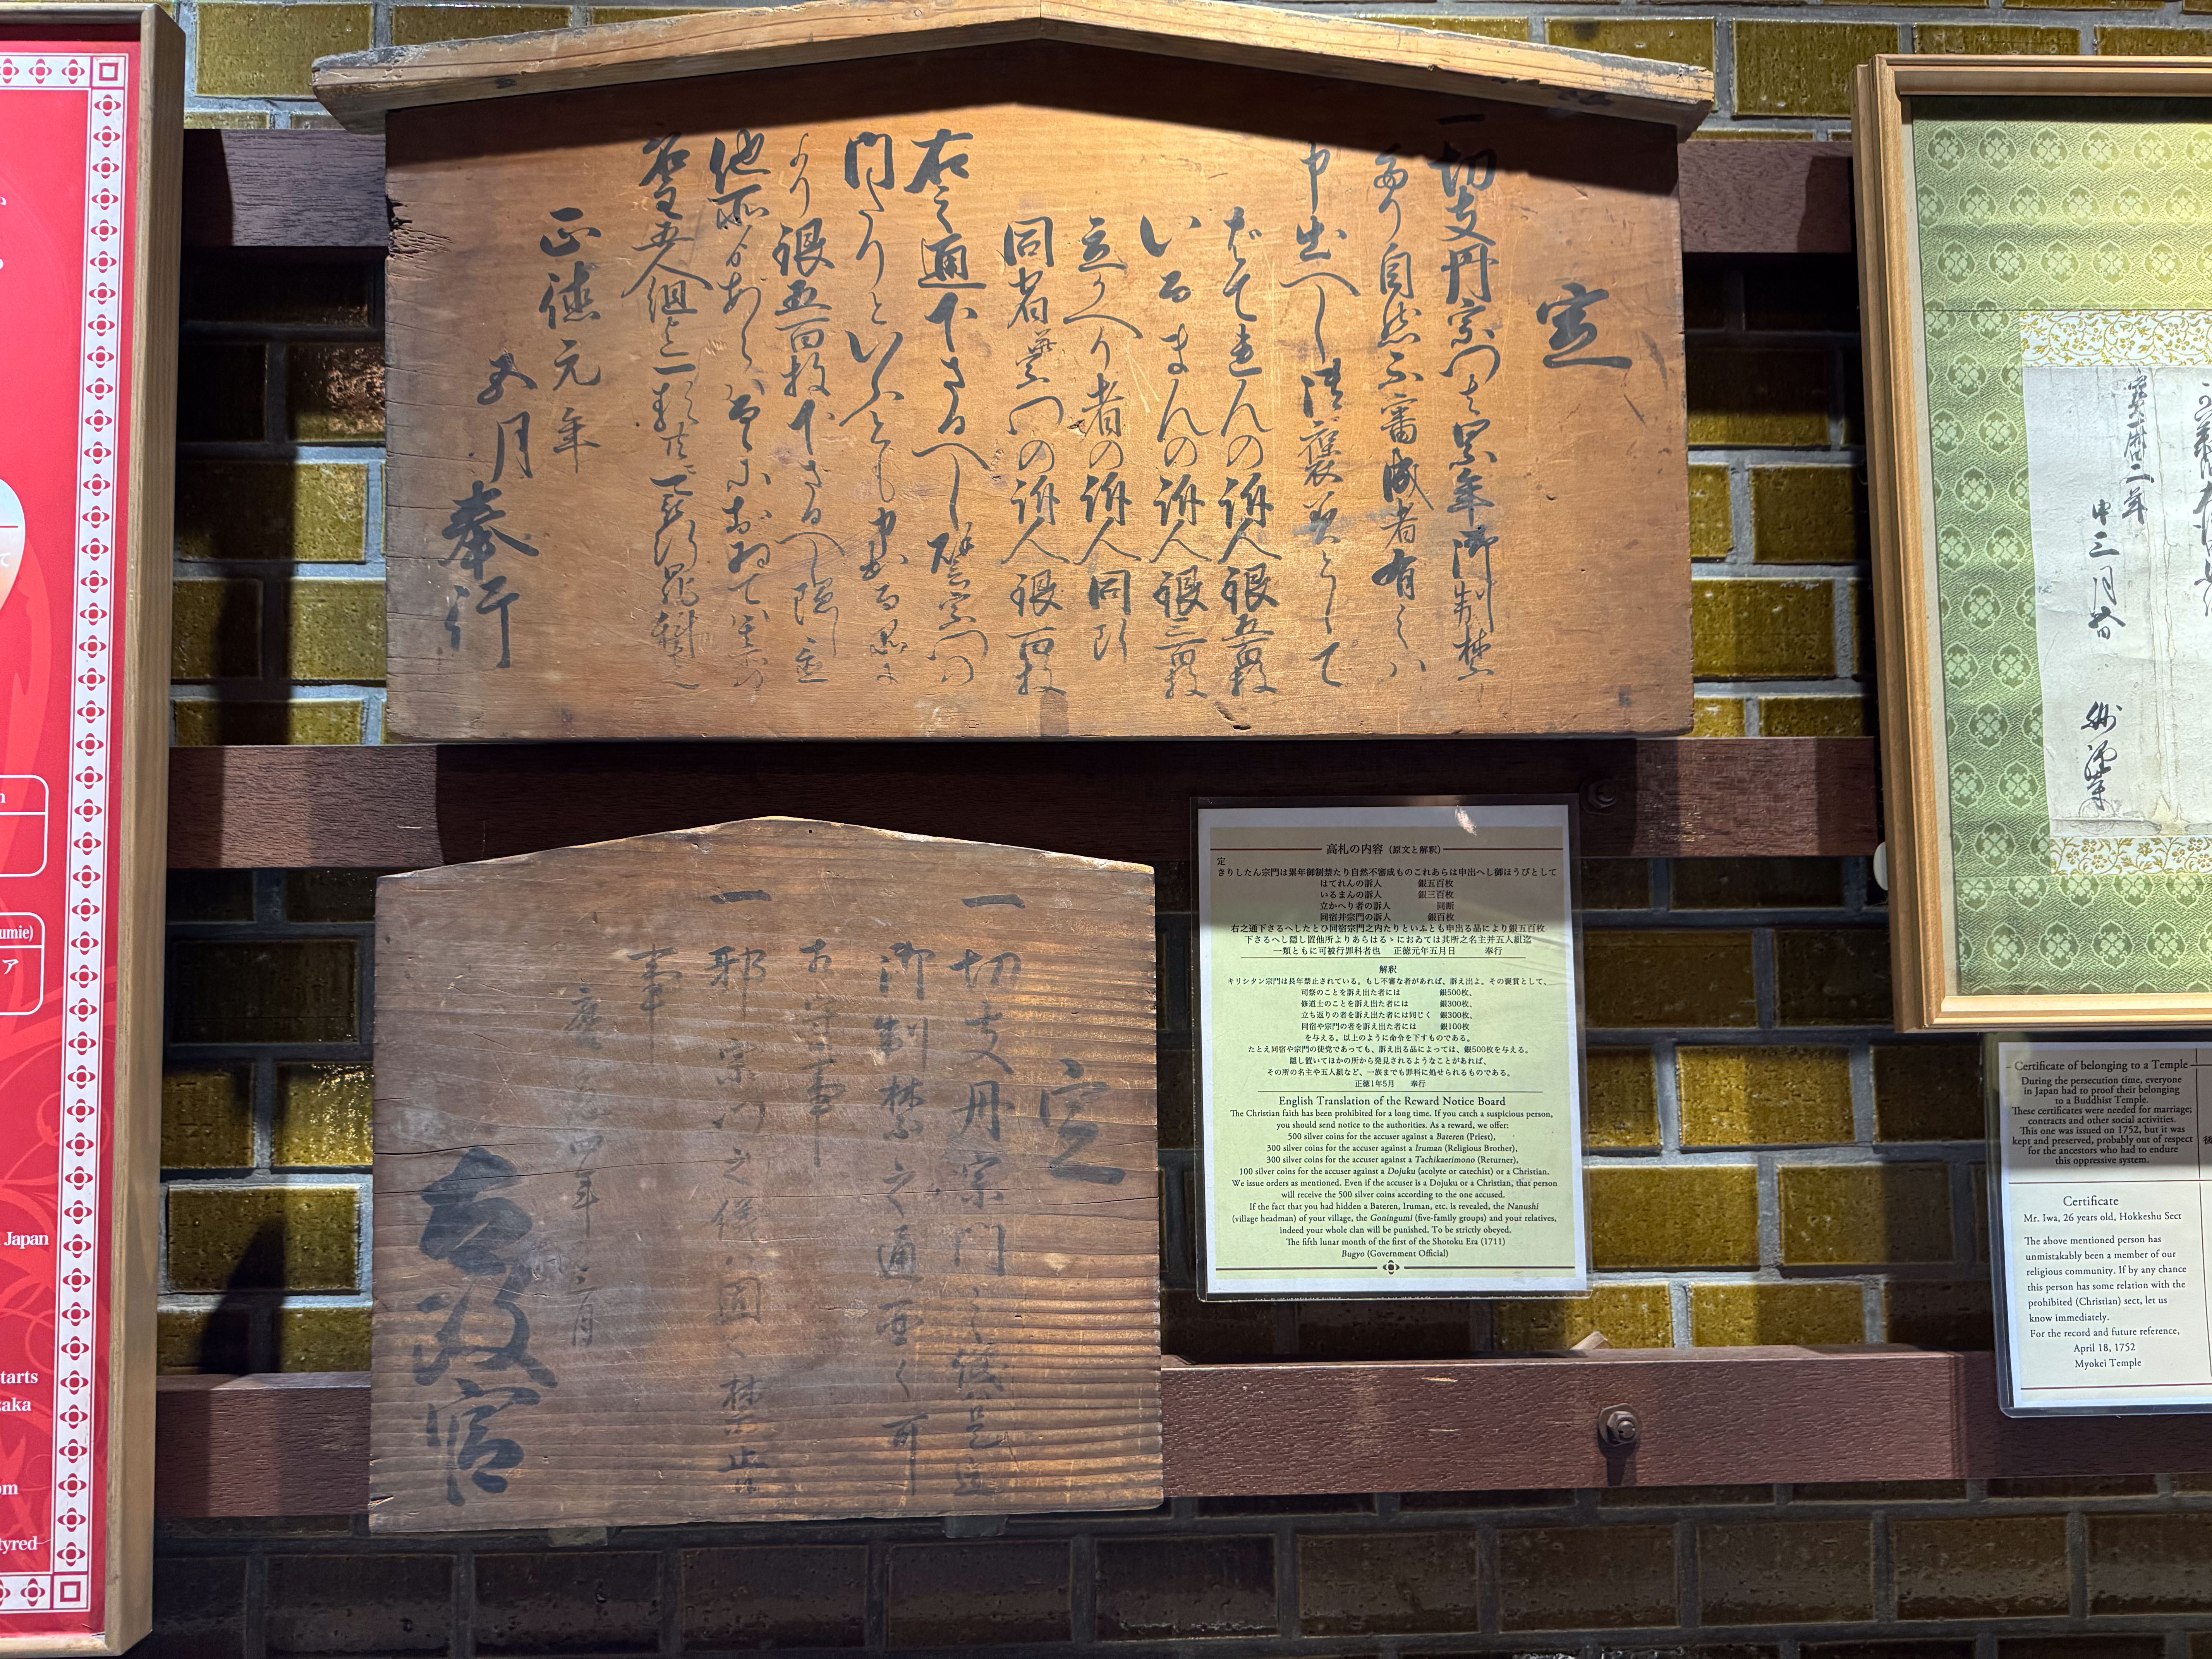 定
一切支丹宗門は累年御制禁
たり自然不審成者有之ハ
申出へし御褒美として
ばてれんの訴人銀五百枚
いるまんの訴人銀三百枚
立かへり者の訴人同断
同宿并宗門の訴人銀百枚
右之通下さるへし譬宗門之
門たりといふとも申出る品に
より銀五百枚下さるへし隠置
他所よりあらはるゝにおゐてハ其所
正徳元年
五月
奉行
定
一切支丹宗門之儀是迄
御制禁之通固く可
相守事
一邪宗門之儀固く禁止
事
慶應四年三月
太政官
高札の内容(原文と解釈)
定
きりしたん宗門は累年御制禁たり自然不審成ものこれあらは申出へし御ほうびとして
はてれんの訴人 銀五百枚
いるまんの訴人 銀三百枚
立かへり者の訴人 同断
同宿并宗門の訴人 銀百枚
右之通下さるへしたとひ同宿宗門之内たりといふとも申出る品により銀五百枚
下さるへし隠し置他所よりあらはるゝにおゐては其所之名主并五人組迄
一類ともに可被行罪科者也 正徳元年五月日 奉行
解釈
キリシタン宗門は長年禁止されている。もし不審な者があれば、訴え出よ。その褒賞として、
司祭のことを訴え出た者には 銀500枚、
修道士のことを訴え出た者には 銀300枚、
立ち返りの者を訴え出た者には同じく 銀300枚、
同宿や宗門の者を訴え出た者には 銀100枚
を与える。以上のように命令を下すものである。
たとえ同宿や宗門の徒党であっても、訴え出る品によっては、銀500枚を与える。
隠し置いてほかの所から発見されるようなことがあれば、
その所の名主や五人組など、一族までも罪科に処せられるものである。
正徳1年5月 奉行
English Translation of the Reward Notice Board
The Christian faith has been prohibited for a long time. If you catch a suspicious person,
you should send notice to the authorities. As a reward, we offer:
500 silver coins for the accuser against a Bateren (Priest),
300 silver coins for the accuser against a Iruman (Religious Brother),
300 silver coins for the accuser against a Tachikaerimono (Returner),
100 silver coins for the accuser against a Dojuku (acolyte or catechist) or a Christian.
We issue orders as mentioned. Even if the accuser is a Dojuku or a Christian, that person
will receive the 500 silver coins according to the one accused.
If the fact that you had hidden a Bateren, Iruman, etc. is revealed, the Nanushi
(village headman) of your village, the Goningumi (five-family groups) and your relatives,
indeed your whole clan will be punished. To be strictly obeyed.
The fifth lunar month of the first of the Shotoku Era (1711)
Bugyo (Government Official)
Certificate of belonging to a Temple
During the persecution time, everyone
in Japan had to proof their belonging
to a Buddhist Temple.
These certificates were needed for marriage,
contracts and other social activities.
This one was issued on 1752, but it was
kept and preserved, probably out of respect
for the ancestors who had to endure
this oppressive system.
Certificate
Mr. Iwa, 26 years old, Hokkeshu Sect
The above mentioned person has
unmistakably been a member of our
religious community. If by any chance
this person has some relation with the
prohibited (Christian) sect, let us
know immediately.
For the record and future reference,
April 18, 1752
Myokei Temple
umie)
ア
Japan
tarts
zaka
om
tyred